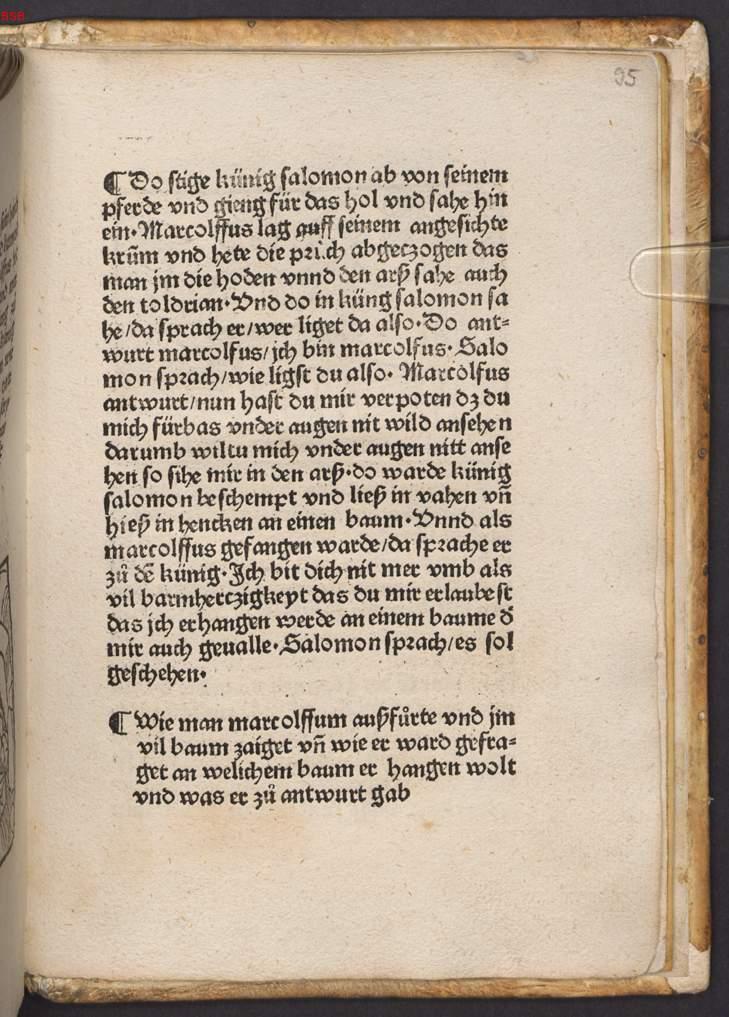 BSB
95
¶ Do stige künig salomon ab von seinem
pferde vnd gieng für das hol vnd sahe hin
ein·Marcolffus lag auff seinem angesichte
krūm vnd hete die pruch abgeczogen das
man jm die hoden vnnd den arß sahe auch
den toldrian·Vnd do in küng salomon sa
he/da sprach er/wer liget da also·Do ant⸗
wurt marcolfus/jch bin marcolfus·Salo
mon sprach/wie ligst du also· Marcolfus
antwurt/nun hast du mir verpoten dz du
mich fürbas vnder augen nit wild ansehen
darumb wiltu mich vnder augen nitt anse
hen so sihe mir in den arß·do warde künig
salomon beschempt vnd ließ in vahen vn̄
hieß in hencken an einen baum·Vnnd als
marcolffus gefangen warde/da sprache er
zů dē künig·Jch bit dich nit mer vmb als
vil barmherczigkeyt das du mir erlaubest
das jch erhangen werde an einem baume d̄
mir auch geualle·Salomon sprach/es sol
geschehen·
¶ Wie man marcolffum außfůrte vnd jm
vil baum zaiget vn̄ wie er ward gefra⸗
get an welichem baum er hangen wolt
vnd was er zů antwurt gab